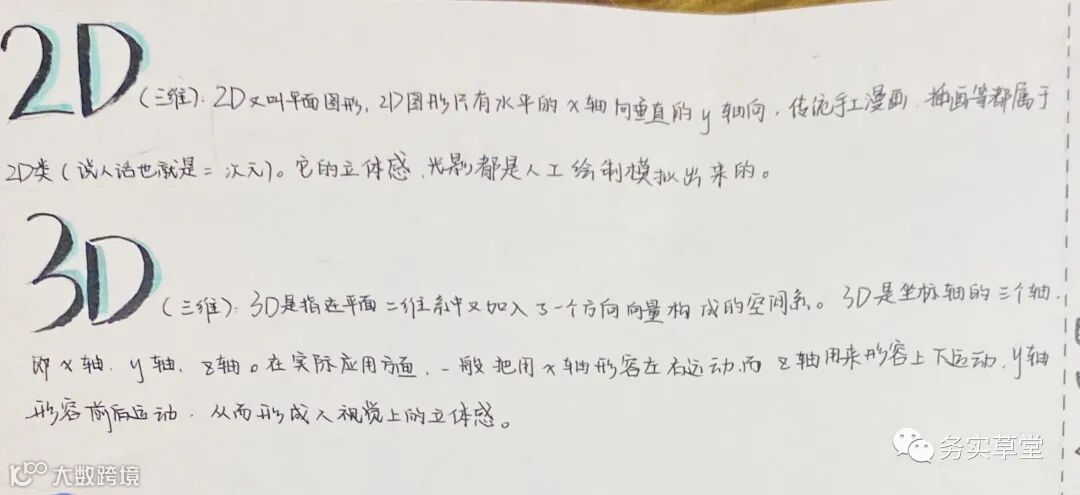 2D(二维):2D又叫平面图形,2D图形只有水平的x轴向垂直的y轴向,传统手工漫画、插画等都属于
2D类(说人话也就是二次元)。它的立体感、光影都是人工绘制模拟出来的。
3D(三维):3D是指在平面二维系中又加入了一个方向向量构成的空间系。3D是坐标轴的三个轴,
即x轴、y轴、z轴。在实际应用方面,一般把用x轴形容左右运动,而z轴用来形容上下运动,y轴
形容前后运动,从而形成人视觉上的立体感。
务实草堂
大数跨境